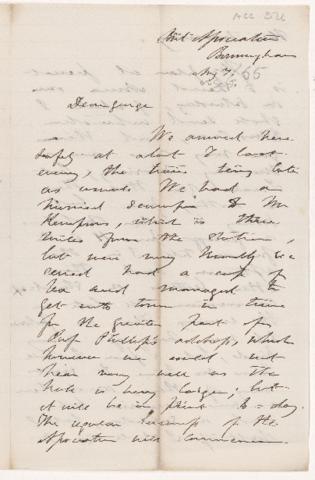 Brit Association
Birmingham
Dear George
We arrived here
safely at about 7 last
eveng, the trains being late
as usual. We had a
hurried to Mr
which is three
miles from the station,
but were very kindly re
ceived had a cup of
tea and managed to
get into town in time
for the greater part of
Prof Phillips's address, which
however we could not
hear very well as the
Hall is very large; but
it will be in print to=day.
The regular of the
Association will commence